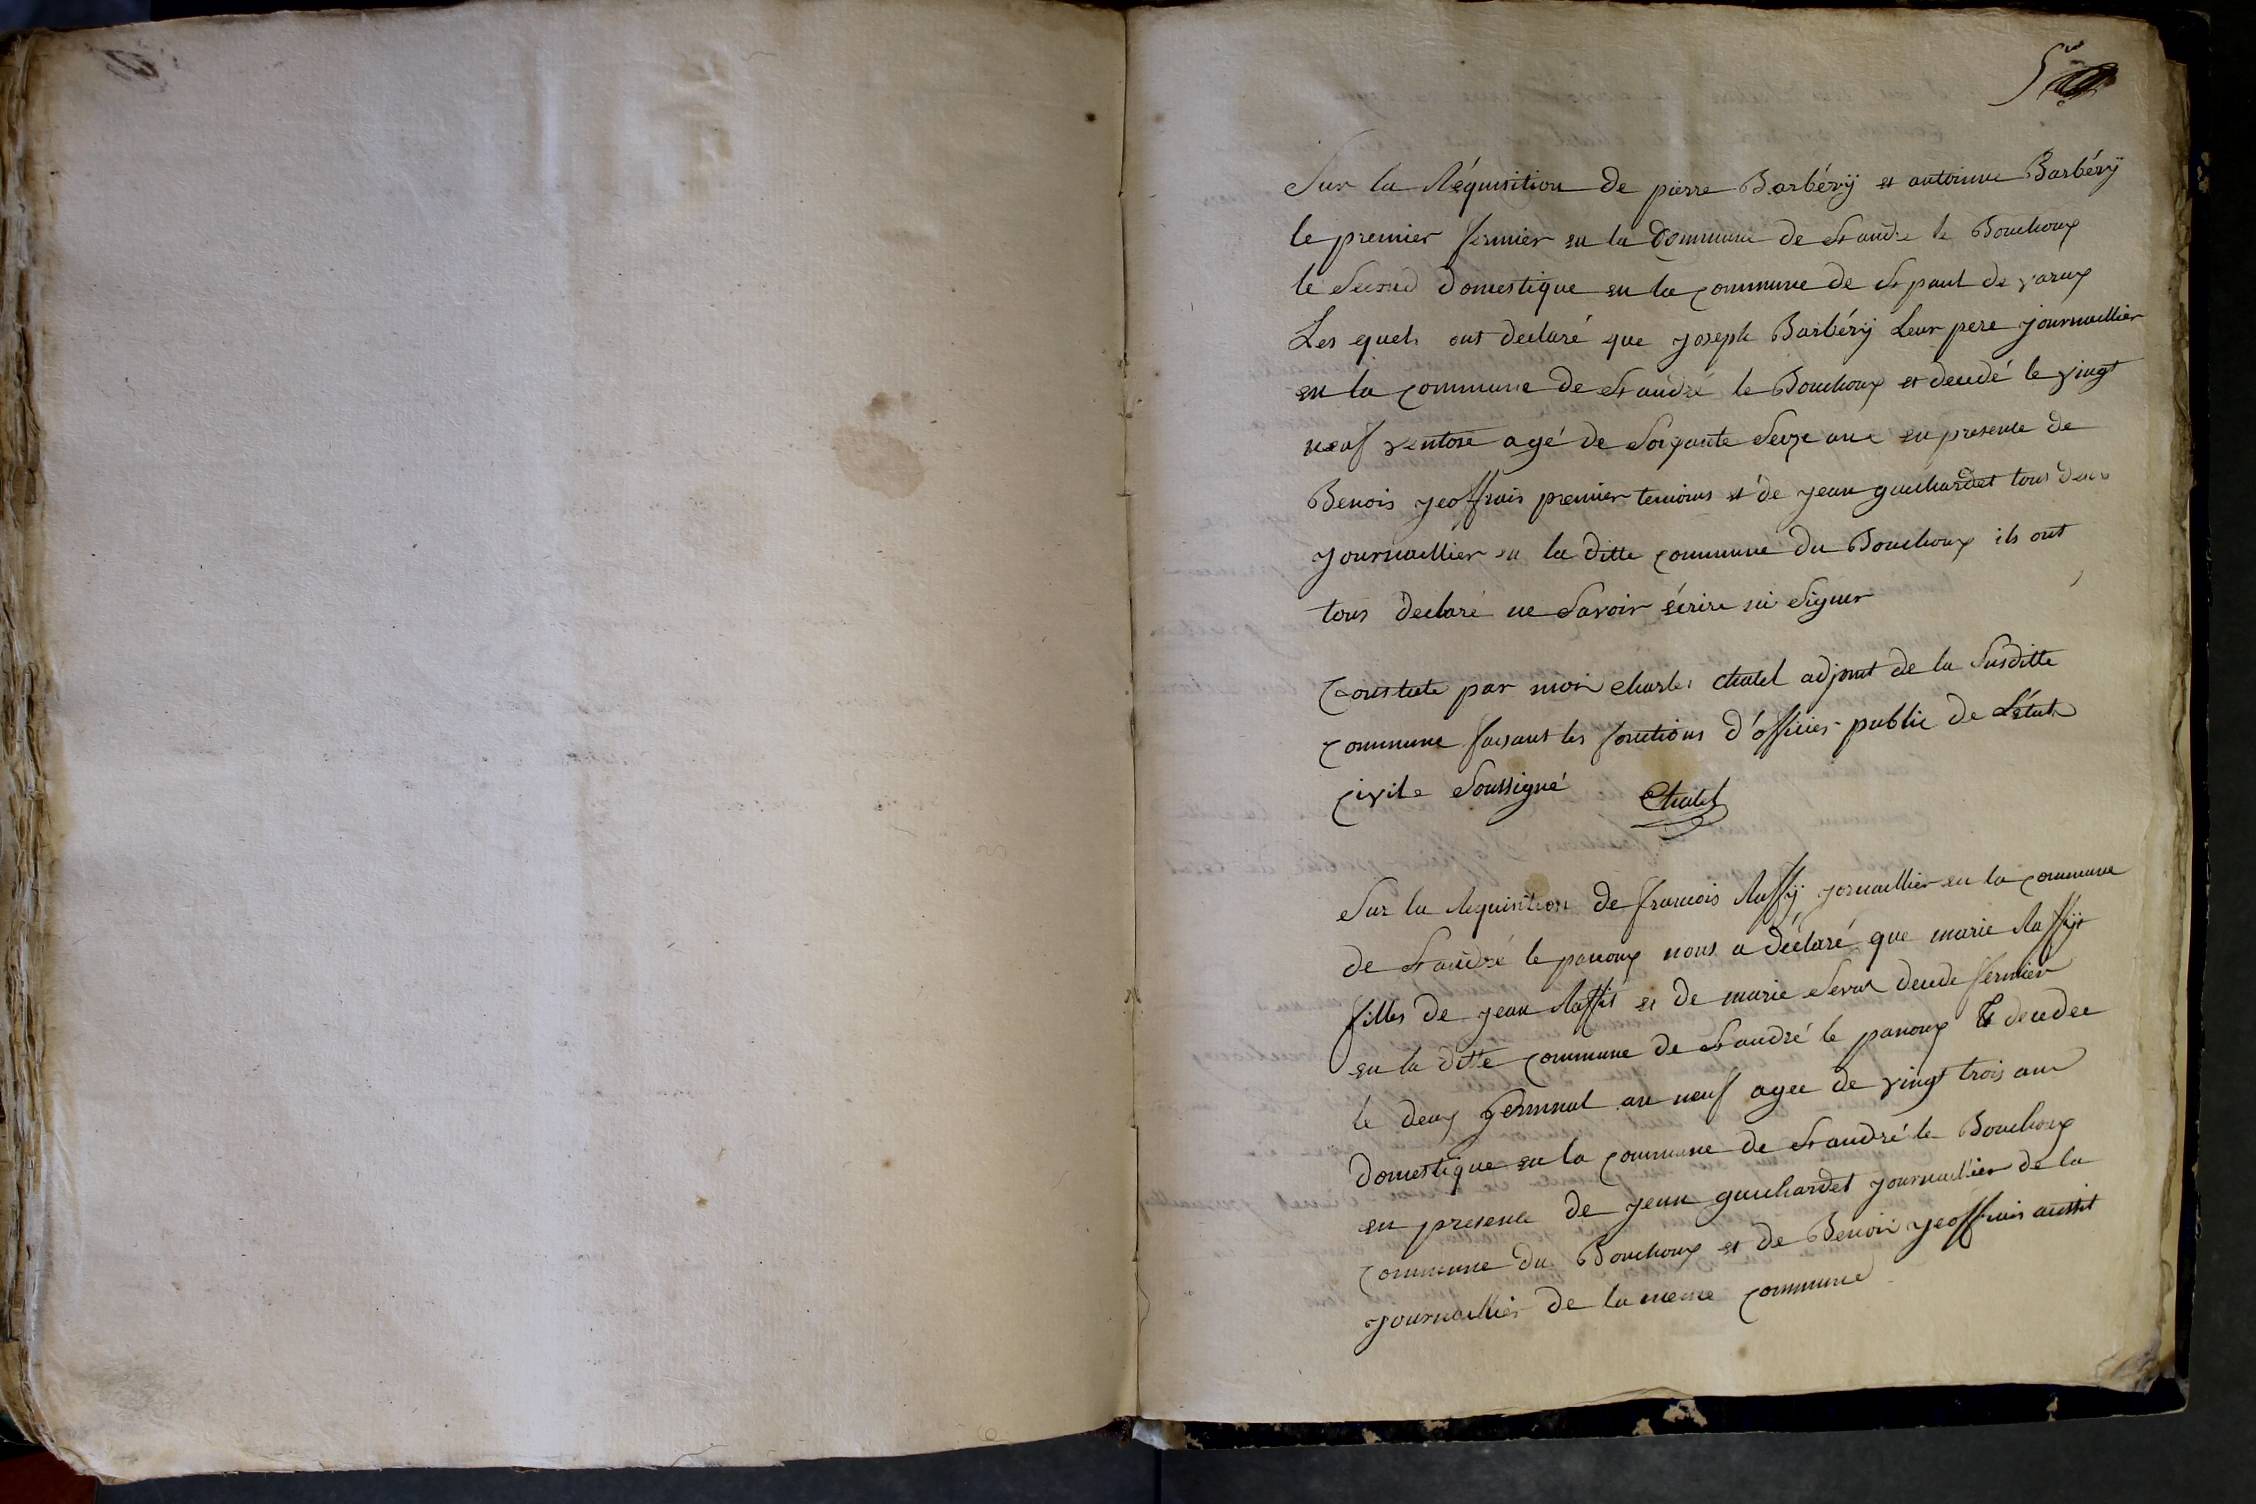 5
Sur la Réquisition de pierre Barbérÿ et antoinne Barbérÿ
le premier fermier en la Commune de St andré le Bouchoux
le Second domestique en la commune de St paul de varax
Les quels ont declaré que joseph Barbérÿ Leur pere journallier
en la commune de St andré le Bouchoux et decedé le vingt
neuf ventose agé de Soixante Seize ans en presence de
Benois jeoffrais premier temoins et de jean guichardet tous deux
journaillier en la ditte commune du Bouchoux ils ont
tous declaré ne Savoir écrire ni Signer
Constate par moi charles chatel adjoint de la Susditte
commune faisant les fonctions d'officier public de L'état
civile Soussigné Chatel
Sur la Requisition de francois Ruffÿ jornaillier en la commune
de St andré le panoux nous a déclaré que marie Ruffÿt
filles de jean Ruffit et de marie decede fermier
en la ditte commune de St andré le panoux Et decedee
le deux germinal an neuf agee de vingt trois ans
domestique en la commune de St andré le Bouchoux
en presence de jean guichardet journallier de la
commune du Bouchoux et de Benois jeoffrais aussit
journallier de la meme commune